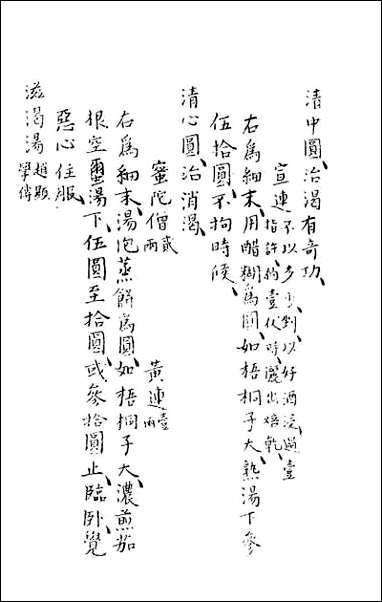 清中圓、治渴有奇功、
宣連
不以多少、剉、以好酒浸過壹
指許、約壹伏時、灑出焙乾、
右爲細末、用醋糊爲圓、如梧桐子大、熱湯下參
伍拾圓、不拘時候、
清心圓、治消渴、
蜜陀僧貳兩 黃連壹兩
右爲細末、湯泡蒸餅爲圓、如梧桐子大、濃煎茄
根空蠒湯下、伍圓至拾圓、或參拾圓止、臨臥、覺
惡心住服、
滋渴湯
趙顯
學傳